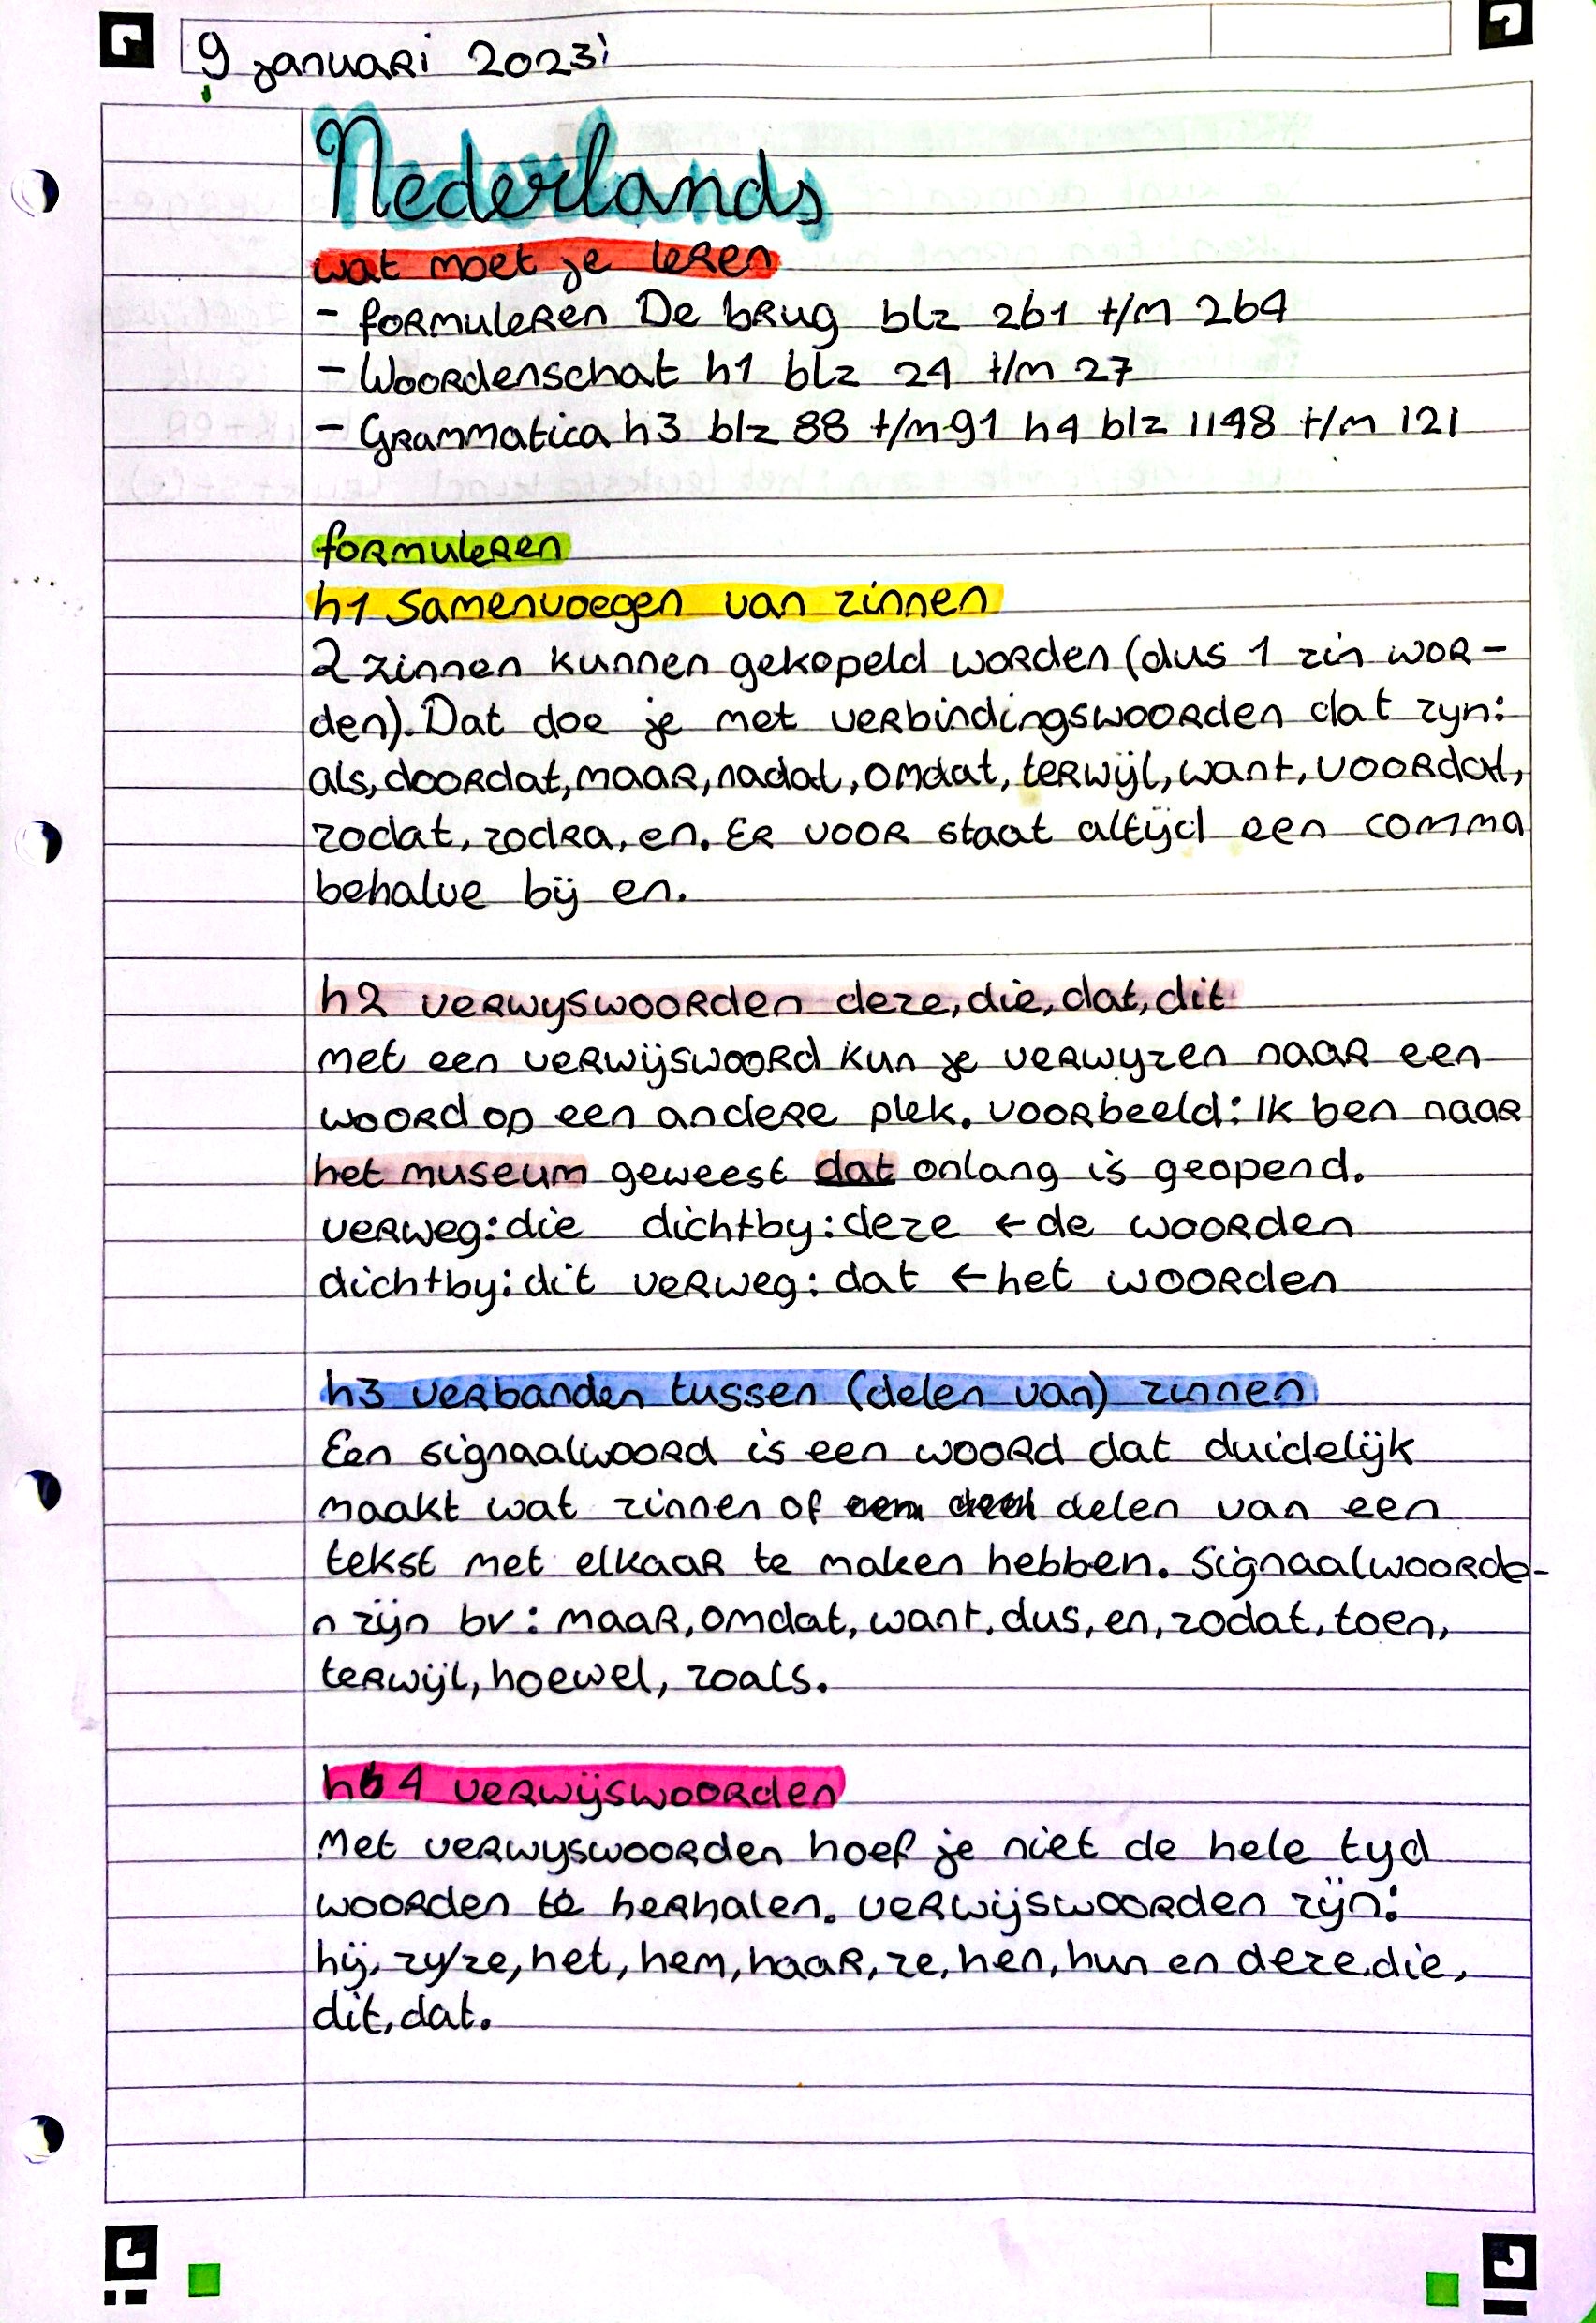 9 januari 2023
Nederlands
wat moet je leren
- formuleren De brug blz 261 t/m 264
- Woordenschat h1 blz 24 t/m 27
- Grammatica h3 blz 88 t/m 91 h4 blz 1148 t/m 121
formuleren
h1 Samenvoegen van zinnen
2 zinnen kunnen gekopeld worden (dus 1 zin wor-
den). Dat doe je met verbindingswoorden dat zyn:
als, doordat, maar, nadat, omdat, terwijl, want, voordat,
zodat, zodra, en. Er voor staat altijd een comma
behalve bij en.
h2 verwyswoorden deze, die, dat, dit
met een verwijswoord kun je verwyzen naar een
woord op een andere plek. voorbeeld: Ik ben naar
het museum geweest dat onlang is geopend.
verweg: die dichtby: deze ← de woorden
dichtby: dit verweg: dat ← het woorden
h3 verbanden tussen (delen van) zinnen
Een signaalwoord is een woord dat duidelijk
maakt wat zinnen of delen van een
tekst met elkaar te maken hebben. Signaalwoorde-
n zijn bv: maar, omdat, want, dus, en, zodat, toen,
terwijl, hoewel, zoals.
h 4 verwijswoorden
Met verwyswoorden hoef je niet de hele tyd
woorden te herhalen. verwijswoorden zijn:
hij, zy/ze, het, hem, haar, ze, hen, hun en deze, die,
dit, dat.